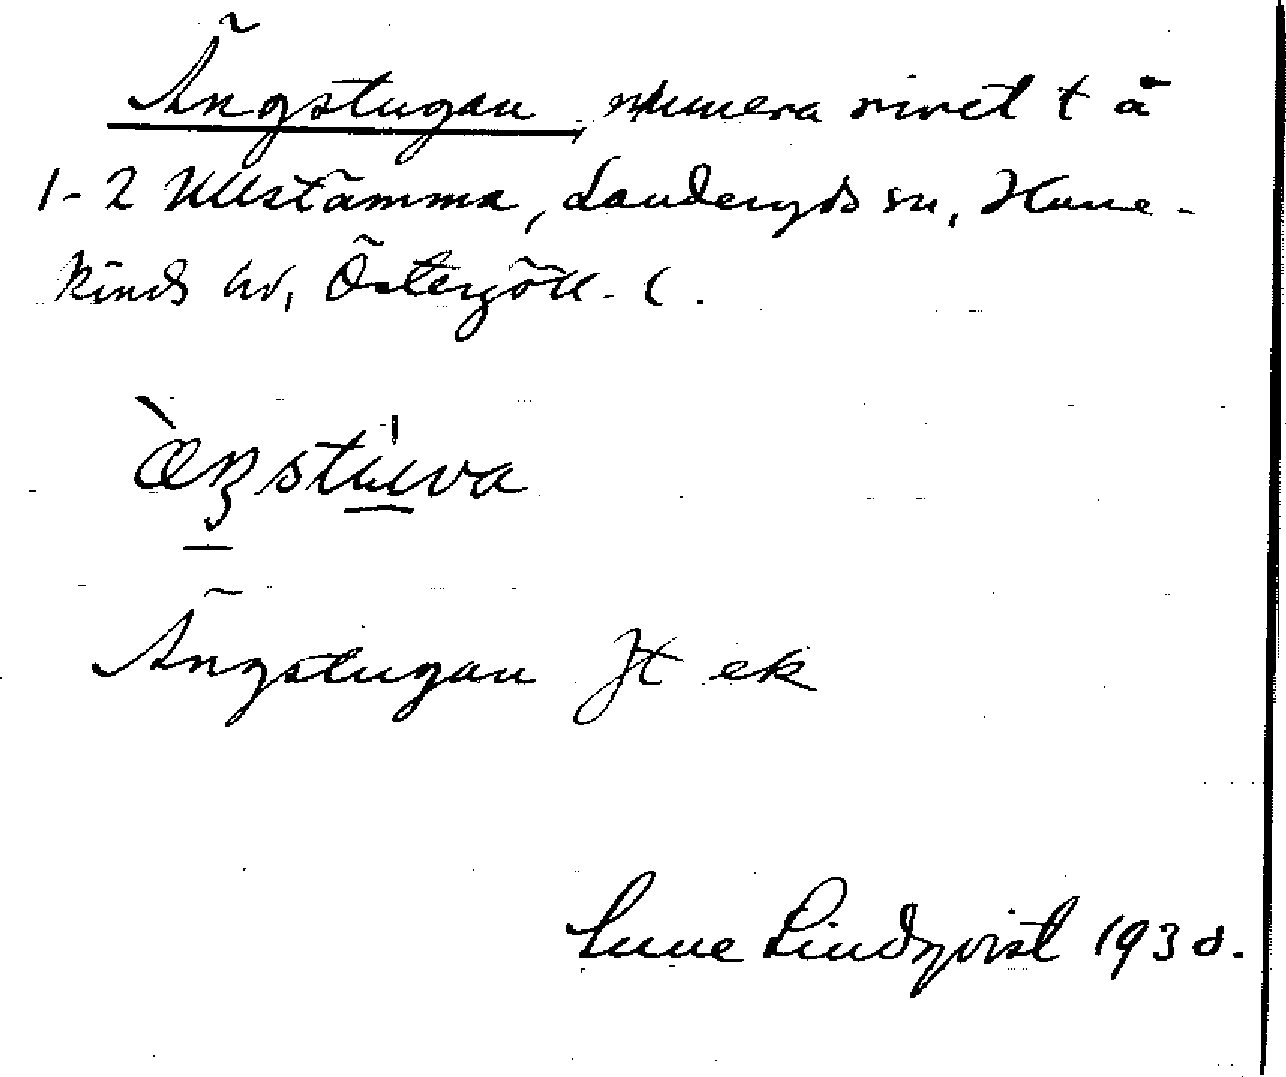 Ängstugan, numera rivet t å
1-2 Ullstämma, Landeryds sn, Hane-
kinds hd, Östergötl. l.
æŋstuva
Ängstugan Jt ek
Sune Lindqvist 1930.